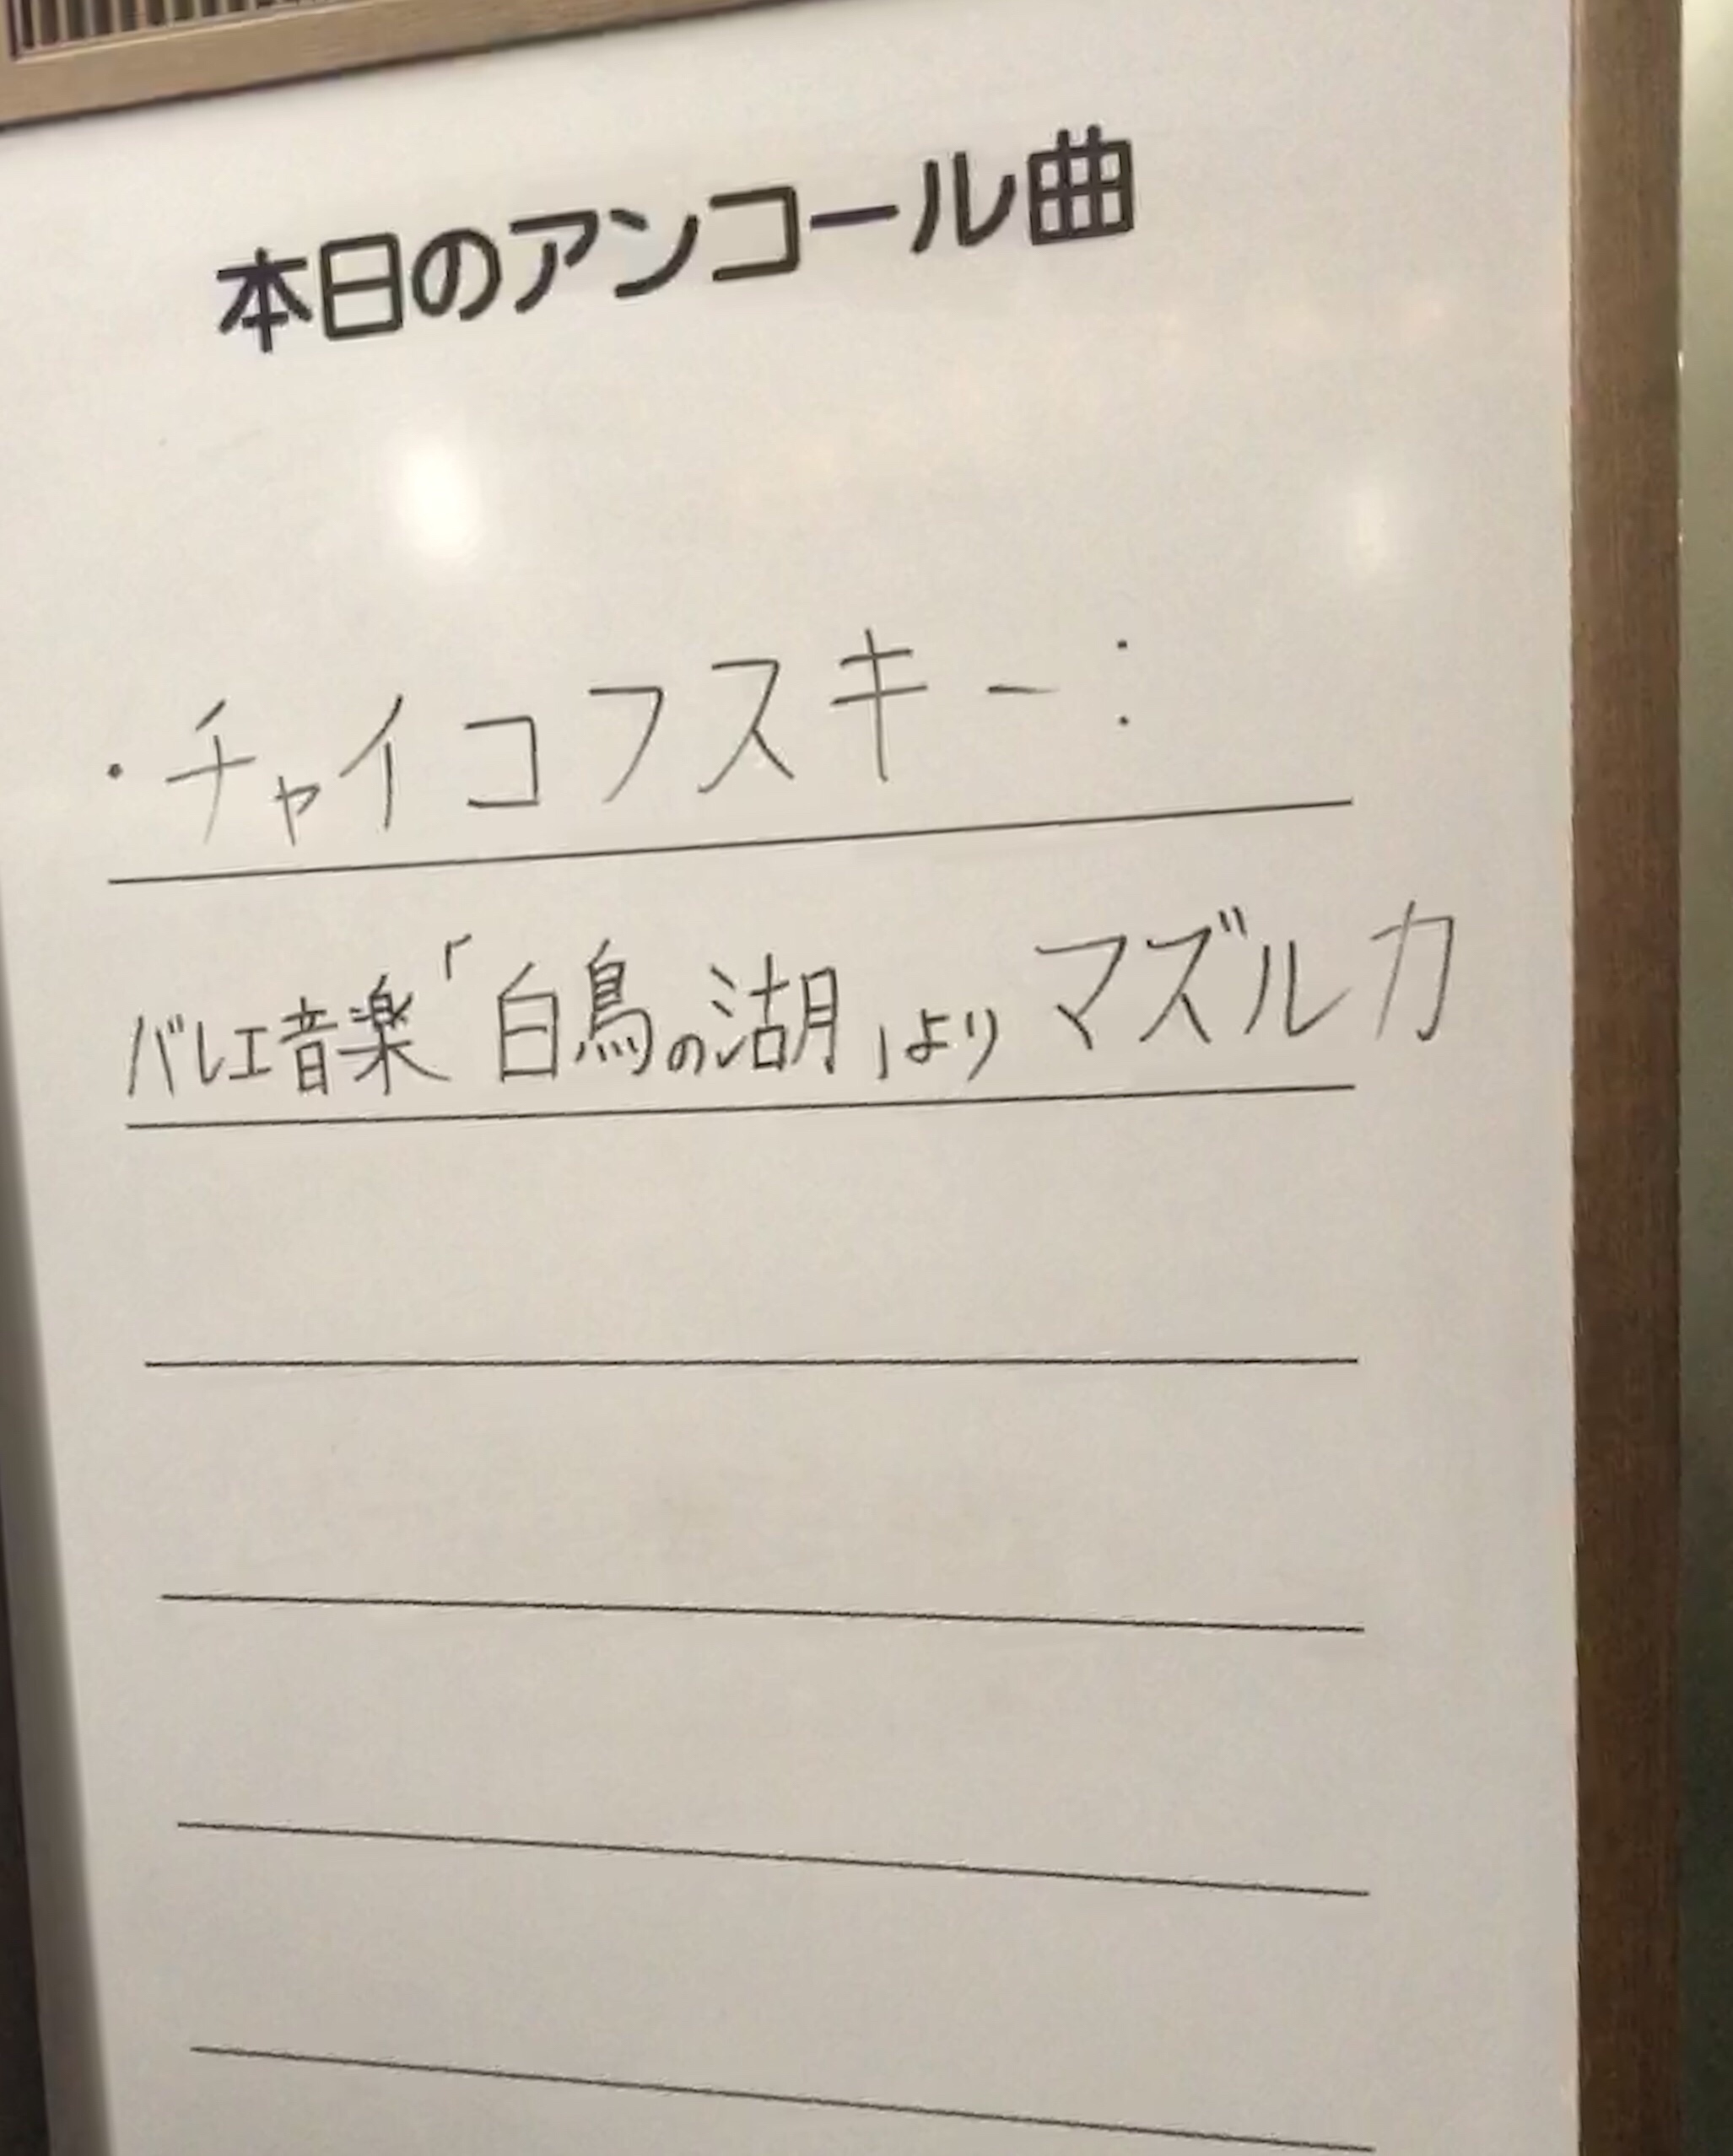 本日のアンコール曲
・チャイコフスキー:
バレエ音楽「白鳥の湖」よりマズルカ